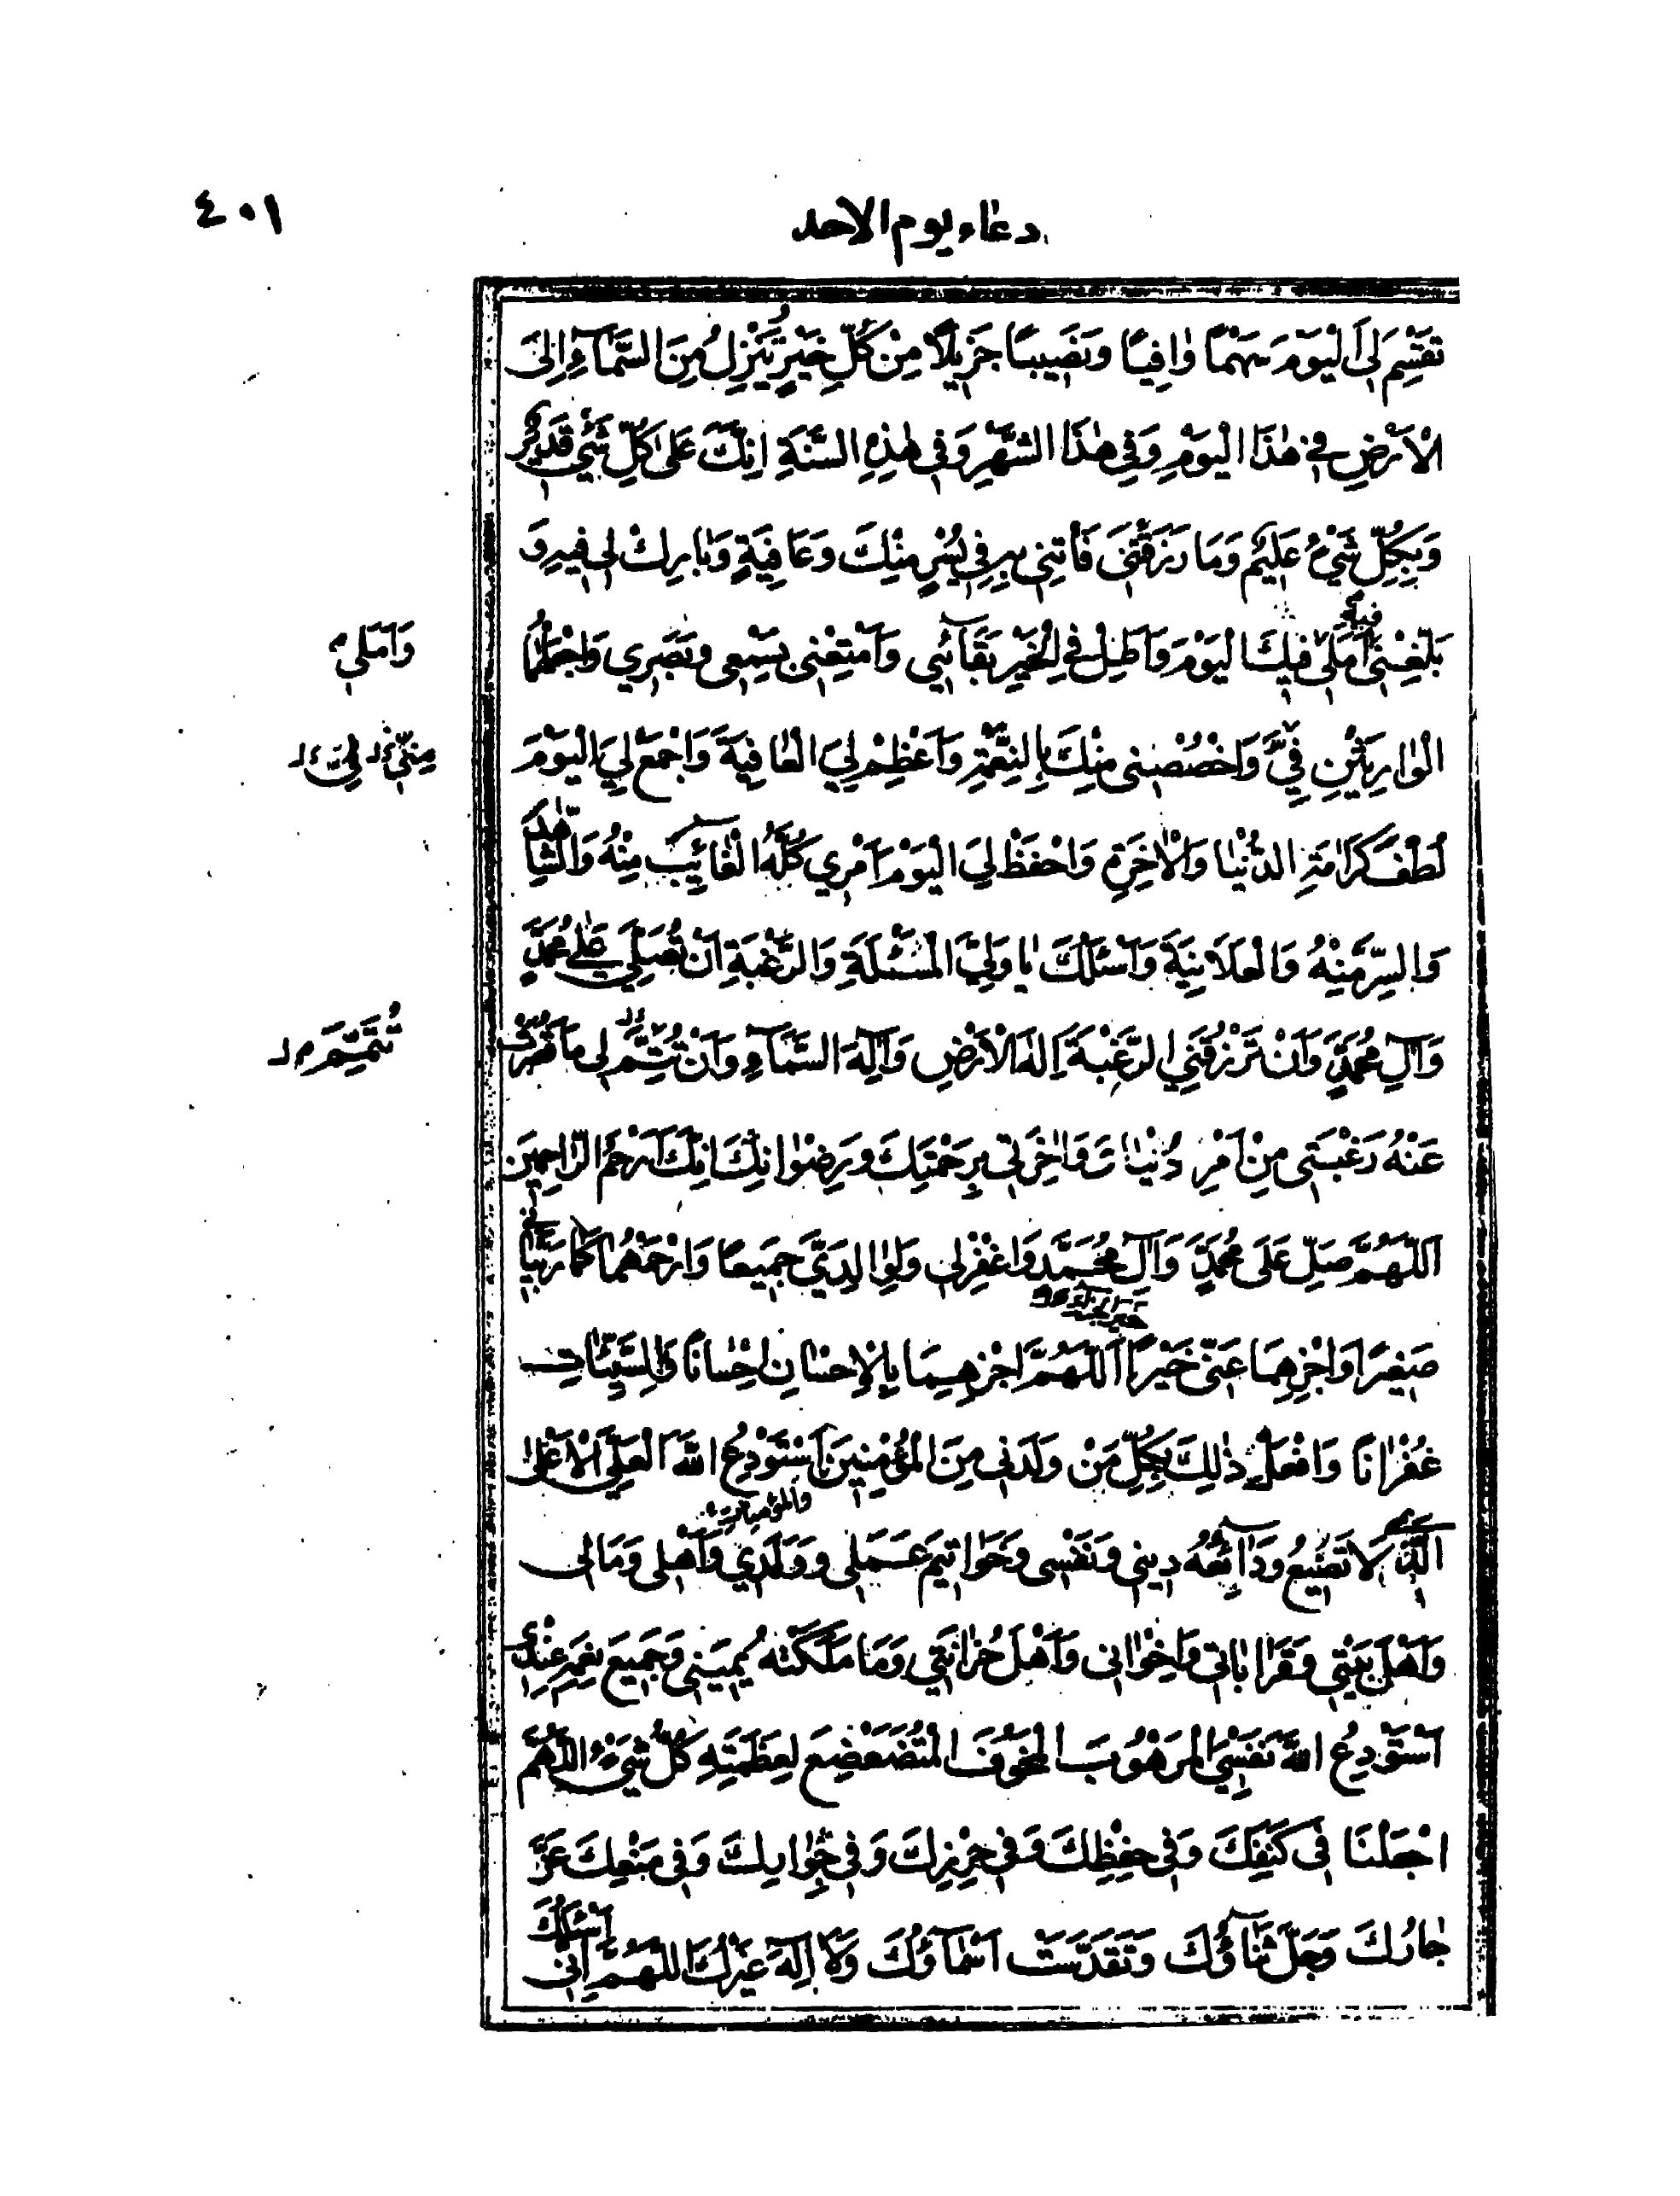 ٤٠١
دعاء يوم الاحد
تَقْسِمَ لِىَ الْيَوْمَ سَهْمًا وٰافِيًا وَنَصيبًا جَزيلًا مِنْ كُلِّ خَيْرٍ يَنْزِلُ مِنَ السَّمآءِ اِلىَ
الْاَرْضِ في هٰذَا الْيَوْمِ وَفِي هٰذَا الشَّهْرِ وَفي هٰذِهِ السَّنَةِ اِنَّكَ عَلىٰ كُلِّ شَيْءٍ قَديرٌ
وَبِكُلِّ شَيْءٍ عَليمٌ وَمَا رَزَقْتَنى فَأْتِنى بِهِ في يُسْرٍ مِنْكَ وَعَافِيَةٍ وَبٰارِكْ لي فيهِ وَ
فيه
بَلِّغْنى اَمَلى فيكَ الْيَوْمَ وَاَطِلْ فِي الْخَيْرِ بَقآئي وَاَمْتِعْنى بِسَمْعى وَبَصَري وَاجْعَلْهُمَا
وَاَمَلي
الْوٰارِثَيْنِ فِيَّ وَاخْصُصْنى مِنْكَ بِالنِّعْمَةِ وَاَعْظِمْ لِيَ الْعٰافِيَةَ وَاجْمَعْ لِيَ الْيَوْمَ
مِنّي
لُطْفَ كَرٰامَةِ الدُّنْيٰا وَالْاٰخِرَةِ وَاحْفَظْ لِيَ الْيَوْمَ اَمْري كُلَّهُ الْغٰائِبَ مِنْهُ وَالشّٰاهِدَ
وَالسِّرَّ مِنْهُ وَالْعَلَانِيَةَ وَاَسْئَلُكَ يٰا وَلِيَّ الْمَسْئَلَةِ وَالرَّغْبَةِ اَنْ تُصَلِّيَ عَلىٰ مُحَمَّدٍ
وَآلِ مُحَمَّدٍ وَاَنْ تَرْزُقَنِي الرَّغْبَةَ اِلٰهَ الْاَرْضِ وَاِلٰهَ السَّمآءِ وَاَنْ تُتِمَّ لى مَا قَصُرَتْ
تُتَمِّمَ
عَنْهُ رَغْبَتى مِنْ اَمْرِ دُنْيٰايَ وَاٰخِرَتى بِرَحْمَتِكَ وَرِضْوٰانِكَ اِنَّكَ اَرْحَمُ الرّٰاحِمِينَ
اَللّٰهُمَّ صَلِّ عَلىَ مُحَمَّدٍ وَآلِ مُحَمَّدٍ وَاغْفِرْلى وَلِوٰالِدَيَّ جَميعًا وَارْحَمْهُمٰا كَمٰا رَبَّيٰانى
صَغيرًا وَاجْزِهِمَا عَنّى خَيْرًا اَللّٰهُمَّ اجْزِهِمَا بِالْاِحْسَانِ اِحْسٰانًا وَبِالسَّيِّئٰاتِ
غُفْرٰانًا وَافْعَلْ ذٰلِكَ بِكُلِّ مَنْ وَلَدَنى مِنَ الْمُؤْمِنينَ اَسْتَوْدِعُ اللّٰهَ الْعَلِيَّ الْاَعْلىٰ
وَالْمُؤْمِنَاتِ
الَّذي لَا تَضيعُ وَدَآئِعُهُ ديني وَنَفْسى وَخَوٰاتيمَ عَمَلى وَوَلَدي وَاَهْلى وَمَالى
وَاَهْلَ بَيْتى وَقَرَابٰاتى وَاِخْوٰانى وَاَهْلَ حُزٰانَتي وَمَا مَلَكَتْهُ يَمينى وَجَميعَ نِعَمِهِ عِنْدي
اَسْتَوْدِعُ اللّٰهَ نَفْسِيَ الْمَرْهُوبَ الْمَخُوفَ الْمُتَضَعْضِعَ لِعَظَمَتِهِ كُلُّ شَيْءٍ اَللّٰهُمَّ
اجْعَلْنَا فى كَنَفِكَ وَفي حِفْظِكَ وَفي حِرْزِكَ وَفي جِوٰارِكَ وَفي مَنْعِكَ عَزَّ
جٰارُكَ وَجَلَّ ثَنٰآؤُكَ وَتَقَدَّسَتْ اَسْمٰآؤُكَ وَلَا اِلٰهَ غَيْرُكَ اَللّٰهُمَّ اِنّى اَسْئَلُكَ